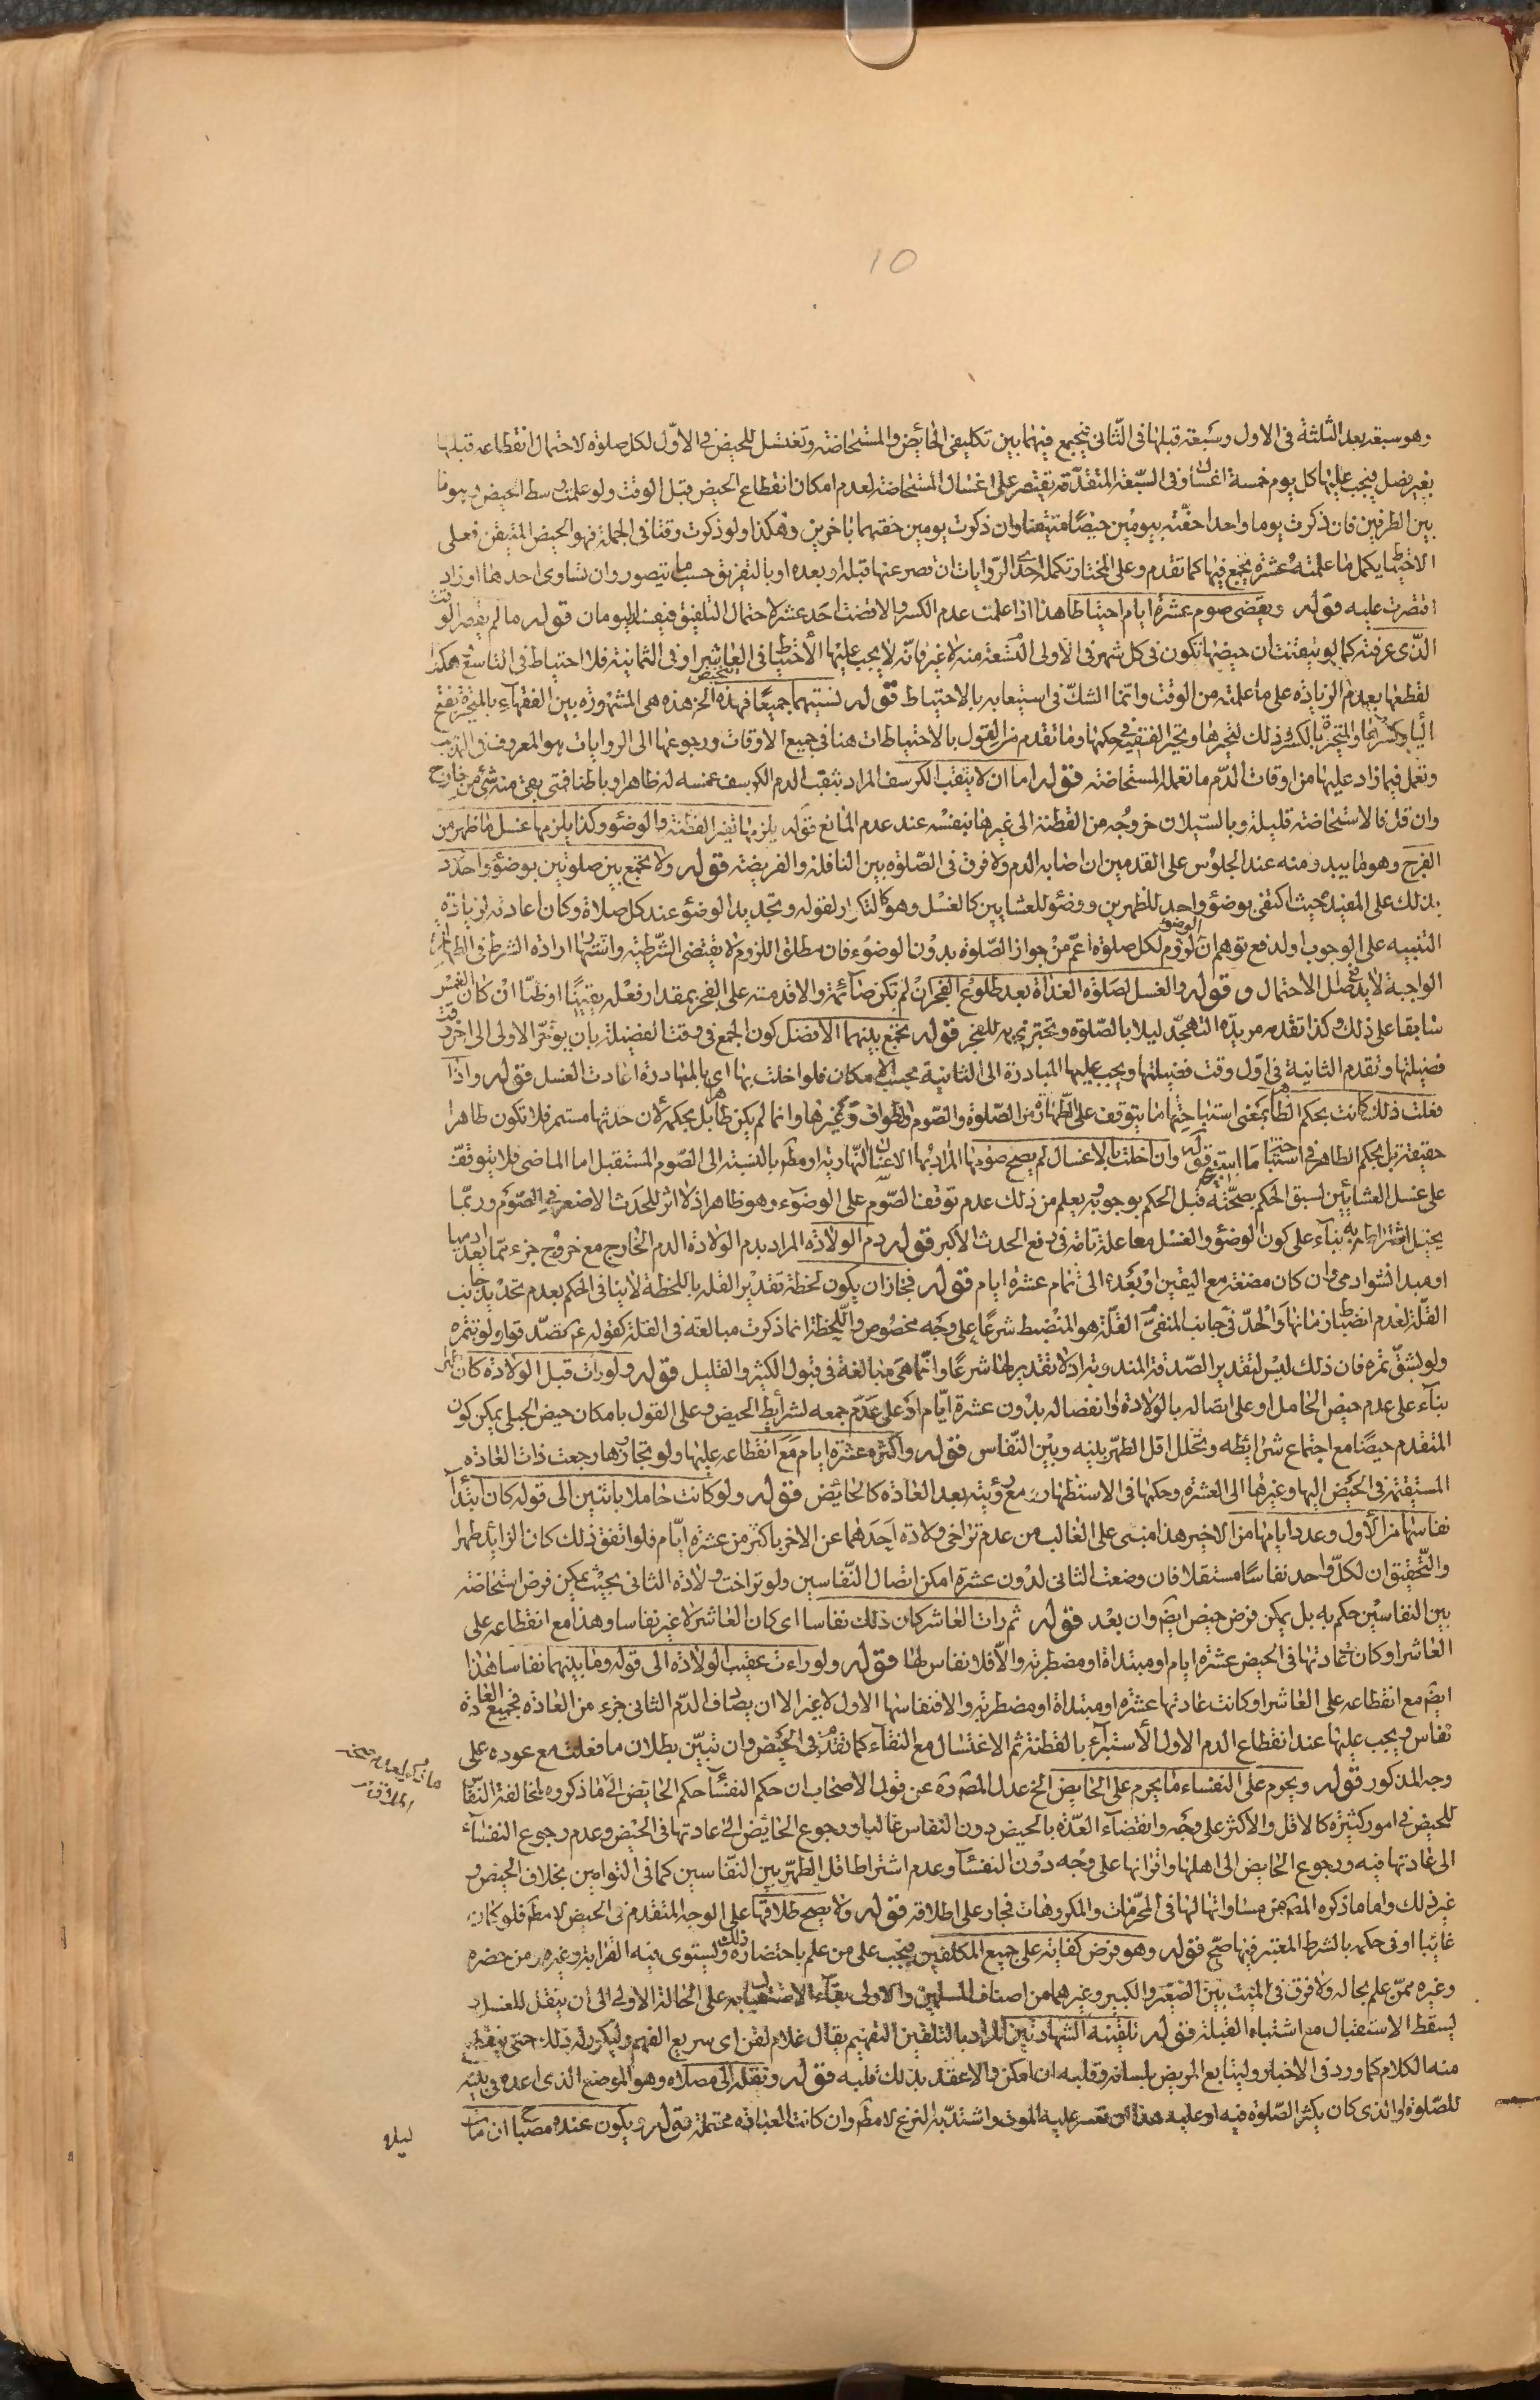 10
وهو سبعة بعد الثلثة في الاول وسبعة قبلها في الثاني فيجمع فيهما بين تكليفي الحائض والمستحاضة وتغتسل للحيض في الاول لكل صلوة لاحتمال انقطاعه قبلها
بغير فصل فيجب عليها كل يوم خمسة اغسال وفي السبعة المتقدمة تقتصر على اغسال المستحاضة لعدم امكان انقطاع الحيض قبل الوقت ولو علمت وسط الحيض وهو ما
بين الطرفين فان ذكرت يوما واحدا حفته بيومين حيضا متيقنا وان ذكرت يومين حفتهما باخرين وهكذا ولو ذكرت وقتا في الجملة فهو الحيض المتيقن فعلى
الاحتياط يكمل ما علمته عشرة يجمع فيها كما تقدم وعلى المختار تكمله احدى الروايات ان قصر عنها قبله او بعده او بالتفريق حسب ما يتصور وان تساوى احدهما او زاد
اقتصرت عليه قوله وتقضى صوم عشرة ايام احتياطا هذا اذا علمت عدم الكسر والا قضت احد عشر لاحتمال التلفيق فيفسد اليومان قوله ما لم يقصر الوقت
الذي عرفته كما لو تيقنت ان حيضها تكون في كل شهر في الاولى التسعة منه لا غير فانه لا يجب عليها الاحتياط في العاشر او في الثمانية فلا احتياط في التاسع وهكذا
لقطعها بعدم الزيادة على ما علمته من الوقت وانما الشك في استيعابه بالاحتياط قوله نسيتهما جميعا فهذه تتحيض الخ هذه هي المشهورة بين الفقهاء بالمتحيرة بفتح
الياء وكسرها والمتحيرة بالكسر وذلك لتحيرها وتحير الفقيه في حكمها وما تقدم من القول بالاحتياطات هنا في جميع الاوقات ورجوعها الى الروايات هو المعروف في المذهب
وتعمل فيما زاد عليها من اوقات الدم ما تعمله المستحاضة قوله اما ان لا يثقب الكرسف المراد بثقب الدم الكرسف غمسه له ظاهرا وباطنا فمتى بقي منه شيء من خارج
وان قل فالاستحاضة قليلة وبالسيلان خروجه من القطنة الى غيرها بنفسه عند عدم المانع قوله يلزمها تغيير القطنة والوضوء وكذا يلزمها غسل ما ظهر من
الفرج وهو ما يبدو منه عند الجلوس على القدمين ان اصابه الدم ولا فرق في الصلوة بين النافلة والفريضة قوله ولا تجمع بين صلوتين بوضوء واحد رد
بذلك على المفيد حيث اكتفى بوضوء واحد للظهرين ووضوء للعشايين كالغسل وهو كالتكرار لقوله وتجديد الوضوء عند كل صلاة وكان اعادته لزيادة
التنبيه على الوجوب او لدفع توهم ان لزوم الوضوء لكل صلوة اعم من جواز الصلوة بدون الوضوء فان مطلق اللزوم لا يقتضى الشرطية وان اشتهر ارادة الشرط في الطهارة
الواجبة لا يدفع اصل الاحتمال و قوله والغسل لصلوة الغداة بعد طلوع الفجر ان لم تكن صائمة والا قدمته على الفجر بمقدار فعله يقينا او ظنا ان كان الغمس
سابقا على ذلك وكذا تقدمه مريدة التهجد ليلا بالصلوة وتجتزى به للفجر قوله تجمع بينهما الافضل كون الجمع في وقت الفضيلة بان يؤخر الاولى الى اخر وقت
فضيلتها وتقدم الثانية في اول وقت فضيلتها ويجب عليها المبادرة الى الثانية بحسب الامكان فلو اخلت بها اي بالمبادرة اعادت الغسل قوله واذا
فعلت ذلك كانت بحكم الطاهر بمعنى استباحتها ما يتوقف على الطهارة من الصلوة والصوم والطواف وغيرها وانما لم يكن طاهرا بل بحكمه لان حدثها مستمر فلا تكون طاهرا
حقيقة بل بحكم الطاهر في استباحة ما استبيح قوله وان اخلت بالاغسال لم يصح صومها المراد بها الاغسال النهارية او مطم بالنسبة الى الصوم المستقبل اما الماضي فلا يتوقف
على غسل العشايين لسبق الحكم بصحته قبل الحكم بوجوبه ويعلم من ذلك عدم توقف الصوم على الوضوء وهو ظاهر اذ لا اثر للحدث الاصغر في الصوم وربما
يخيل اشتراطه به بناء على كون الوضوء والغسل معا علة تامة في رفع الحدث الاكبر قوله دم الولادة المراد بدم الولادة الدم الخارج مع خروج جزء مما يعد ادميا
او مبدا نشو ادمي وان كان مضغة مع اليقين او بعده الى تمام عشرة ايام قوله فجاز ان يكون لحظة تقدير القلة باللحظة لا ينافي الحكم بعدم تحديد جانب
القلة لعدم انضباط زمانها والحد في جانب المنفي القلة هو المنضبط شرعا على وجه مخصوص واللحظة انما ذكرت مبالغة في القلة كقوله ع تصدقوا ولو بتمرة
ولو بشق تمرة فان ذلك ليس لتقدير الصدقة المندوبة اذ لا تقدير لها شرعا وانما هي مبالغة في قبول الكثير والقليل قوله ولو رات قبل الولادة كان طهرا
بناء على عدم حيض الحامل او على اتصاله بالولادة وانفصاله بدون عشرة ايام او على عدم جمعه لشرايط الحيض وعلى القول بامكان حيض الحبلى يمكن كون
المتقدم حيضا مع اجتماع شرائطه وتخلل اقل الطهر بينه وبين النفاس قوله واكثره عشرة ايام مع انقطاعه عليها ولو تجاوزها رجعت ذات العادة
المستقيمة في الحيض اليها وغيرها الى العشرة وحكمها في الاستظهار مع رؤيته بعد العادة كالحائض قوله ولو كانت حاملا باثنين الى قوله كان ابتدا
نفاسها من الاول وعدد ايامها من الاخير هذا مبنى على الغالب من عدم تراخي ولادة احدهما عن الاخر باكثر من عشرة ايام فلو اتفق ذلك كان الزائد طهرا
والتحقيق ان لكل واحد نفاسا مستقلا فان وضعت الثاني لدون عشرة امكن اتصال النفاسين ولو تراخت ولادة الثاني بحيث يمكن فرض استحاضة
بين النفاسين حكم به بل يمكن فرض حيض ايضا وان بعد قوله ثم رات العاشر كان ذلك نفاسا اى كان العاشر لا غير نفاسا وهذا مع انقطاعه على
العاشر او كان عادتها في الحيض عشرة ايام او مبتداة او مضطربة والا فلا نفاس لها قوله ولو راءت عقيب الولادة الى قوله وما بينهما نفاسا هذا
ايضم مع انقطاعه على العاشر او كانت عادتها عشرة او مبتداة او مضطربة والا فنفاسها الاول لا غير الا ان يصادف الدم الثاني جزء من العادة فجميع العادة
نفاس ويجب عليها عند انقطاع الدم الاول الاستبراء بالقطنة ثم الاغتسال مع النقاء كما تقدم في الحيض وان تبين بطلان ما فعلت مع عوده على
وجه المذكور قوله ويحرم على النفساء ما يحرم على الحايض الخ عدل المصره عن قول الاصحاب ان حكم النفساء حكم الحايض الى ما ذكروه لمخالفة النفاس
للحيض في امور كثيرة كالاقل والاكثر على وجه وانقضاء العدة بالحيض دون النفاس غالبا ورجوع الحائض الى عادتها في الحيض وعدم رجوع النفساء
الى عادتها فيه ورجوع الحايض الى اهلها واقرانها على وجه دون النفساء وعدم اشتراط اقل الطهر بين النفاسين كما في التوامين بخلاف الحيض و
غير ذلك واما ما ذكره المص من مساواتها لها في المحرمات والمكروهات فجار على اطلاقه قوله ولا يصح طلاقها على الوجه المتقدم في الحيض لا مطم فلو كان
غائبا او في حكمه بالشرط المعتبر فيها صح قوله وهو فرض كفاية على جميع المكلفين فيجب على من علم باحتضاره ذلك ويستوى فيه القرابة وغيره ومن حضره
وغيره ممن علم بحاله ولا فرق في الميت بين الصغير والكبير وغيرهما من اصناف المسلمين والاولى بقاء الاستقبال به على الحالة الاولى الى ان ينقل للغسل و
يسقط الاستقبال مع اشتباه القبلة قوله تلقينه الشهادتين المراد بالتلقين التفهيم يقال غلام لقن اى سريع الفهم وليكرر له ذلك حتى ينقطع
منه الكلام كما ورد في الاخبار وليتابع المريض بلسانه وقلبه ان امكن والا عقد بذلك قلبه قوله ونقله الى مصلاه وهو الموضع الذي اعده في بيته
للصلوة او الذي كان يكثر الصلوة فيه او عليه هذا ان تعسر عليه الموت واشتد به النزع لا مطم وان كانت العبارة محتملة قوله ويكون عنده مصباح ان مات
ليلا